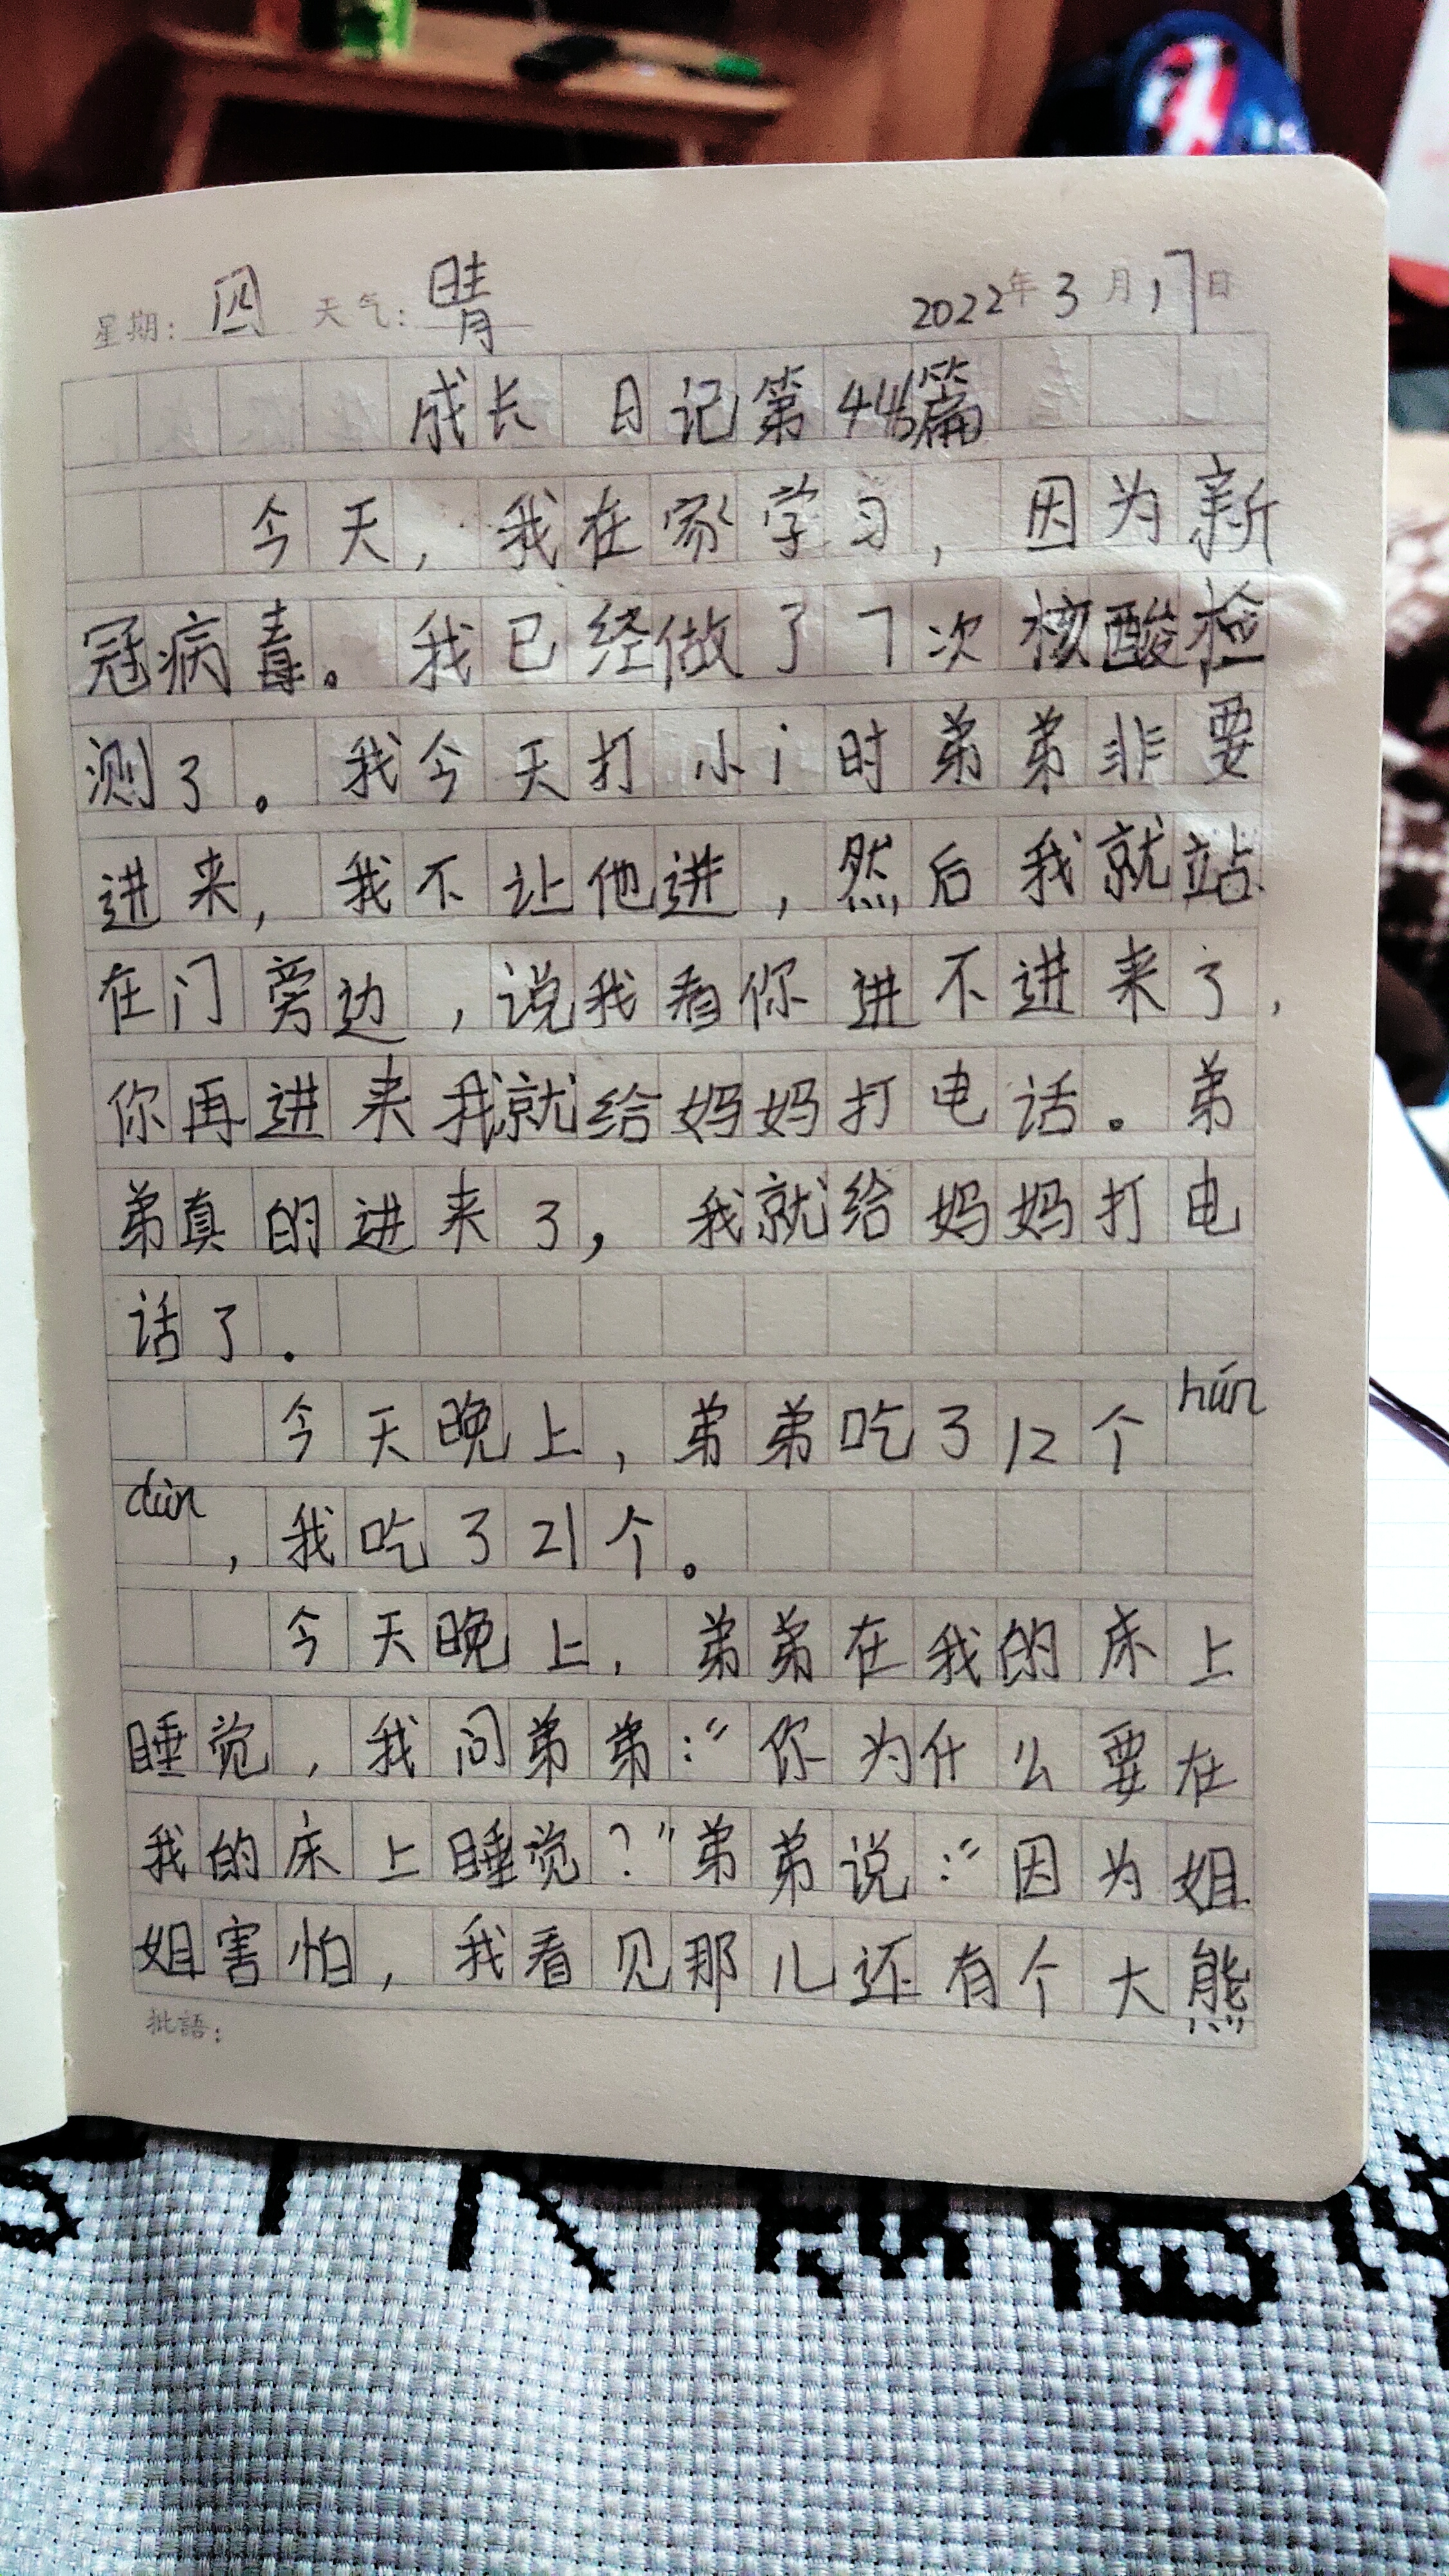 星期: 四 天气: 晴 2022年3月17日
成长日记第44篇
今天,我在家学习,因为新
冠病毒。我已经做了7次核酸检
测了。我今天打小i时弟弟非要
进来,我不让他进,然后我就站
在门旁边,说我看你进不进来了,
你再进来我就给妈妈打电话。弟
弟真的进来了,我就给妈妈打电
话了.
今天晚上,弟弟吃了12个hún
dùn,我吃了21个。
今天晚上,弟弟在我的床上
睡觉,我问弟弟:“你为什么要在
我的床上睡觉?”弟弟说:“因为姐
姐害怕,我看见那儿还有个大熊
批語: